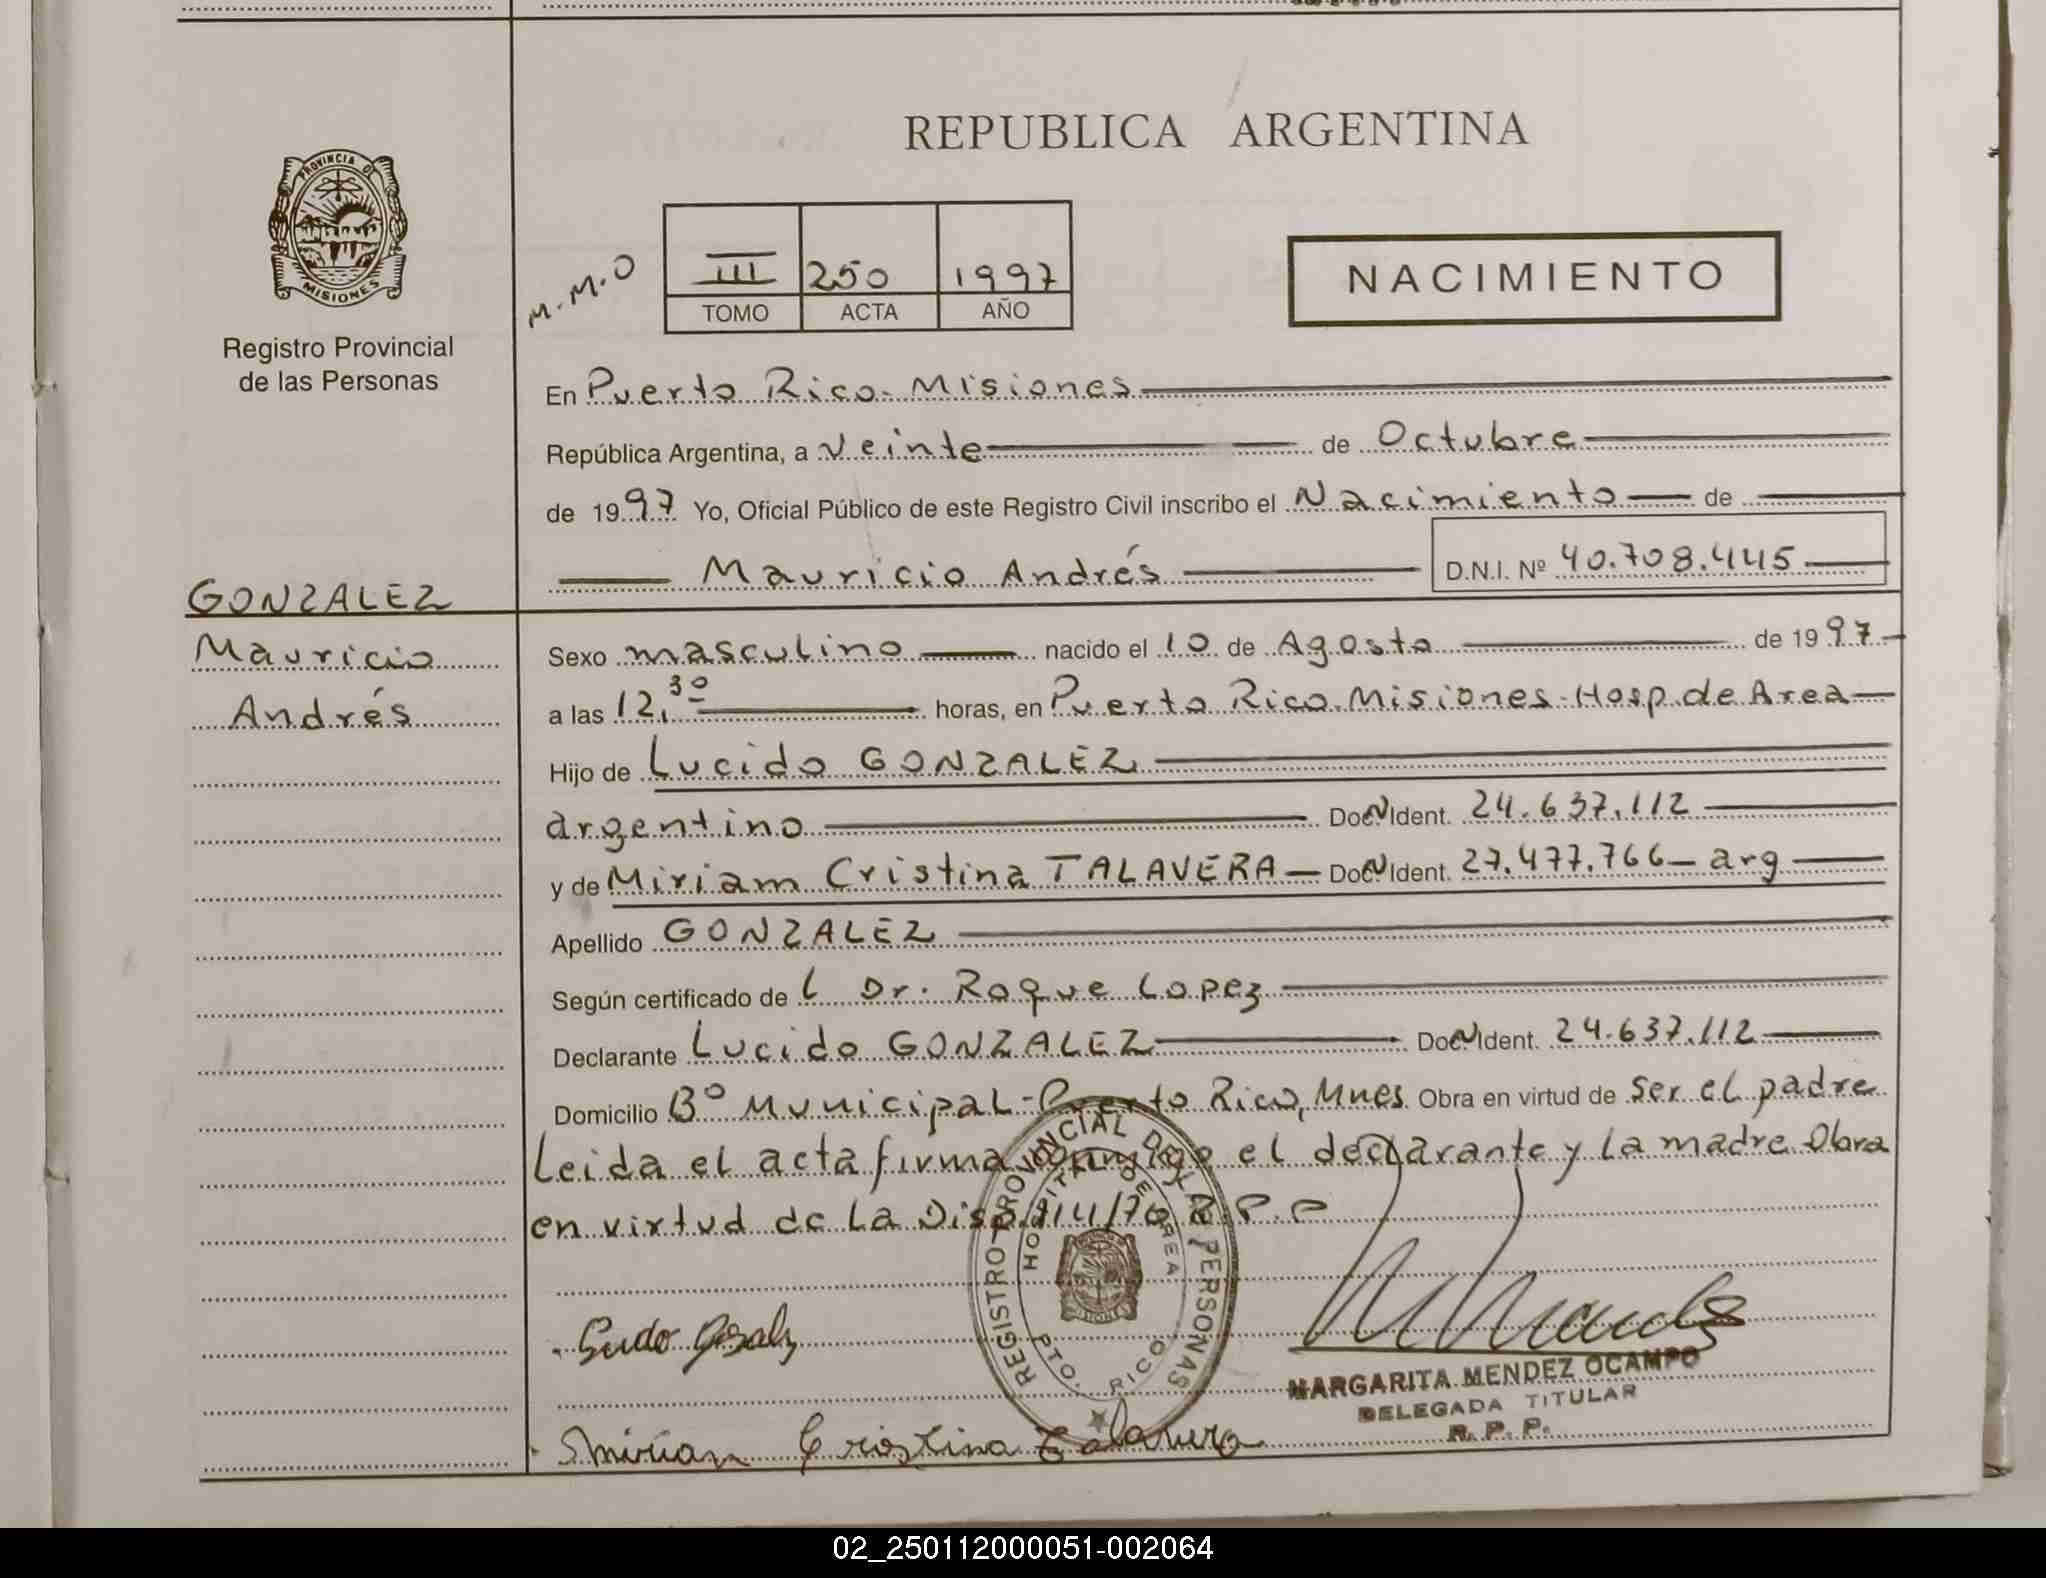 REPUBLICA ARGENTINA
PROVINCIA DE
MISIONES
Registro Provincial
de las Personas
M.M.O
III 250 1997
TOMO ACTA AÑO
NACIMIENTO
En Puerto Rico-Misiones
República Argentina, a veinte de Octubre
de 1997 Yo, Oficial Público de este Registro Civil inscribo el Nacimiento de
Mauricio Andrés D.N.I. Nº 40.708.445
GONZALEZ
Mauricio
Andrés
Sexo masculino nacido el 10 de Agosto de 1997
a las 12,30 horas, en Puerto Rico.Misiones-Hosp.de Area
Hijo de Lucido GONZALEZ
argentino Doc.N Ident. 24.637.112
y de Miriam Cristina TALAVERA Doc.N Ident. 27.477.766- arg
Apellido GONZALEZ
Según certificado de L Dr. Roque Lopez
Declarante Lucido GONZALEZ Doc.N Ident. 24.637.112
Domicilio Bº Municipal-Puerto Rico, Mnes Obra en virtud de ser el padre
Leida el acta firma conmigo el declarante y la madre Obra
en virtud de la Disp. /76 R.P.P
REGISTRO PROVINCIAL DE LAS PERSONAS
HOSPITAL DE AREA
PTO. RICO
MARGARITA MENDEZ OCAMPO
DELEGADA TITULAR
R. P. P.
Miriam Cristina Talavera
02_250112000051-002064